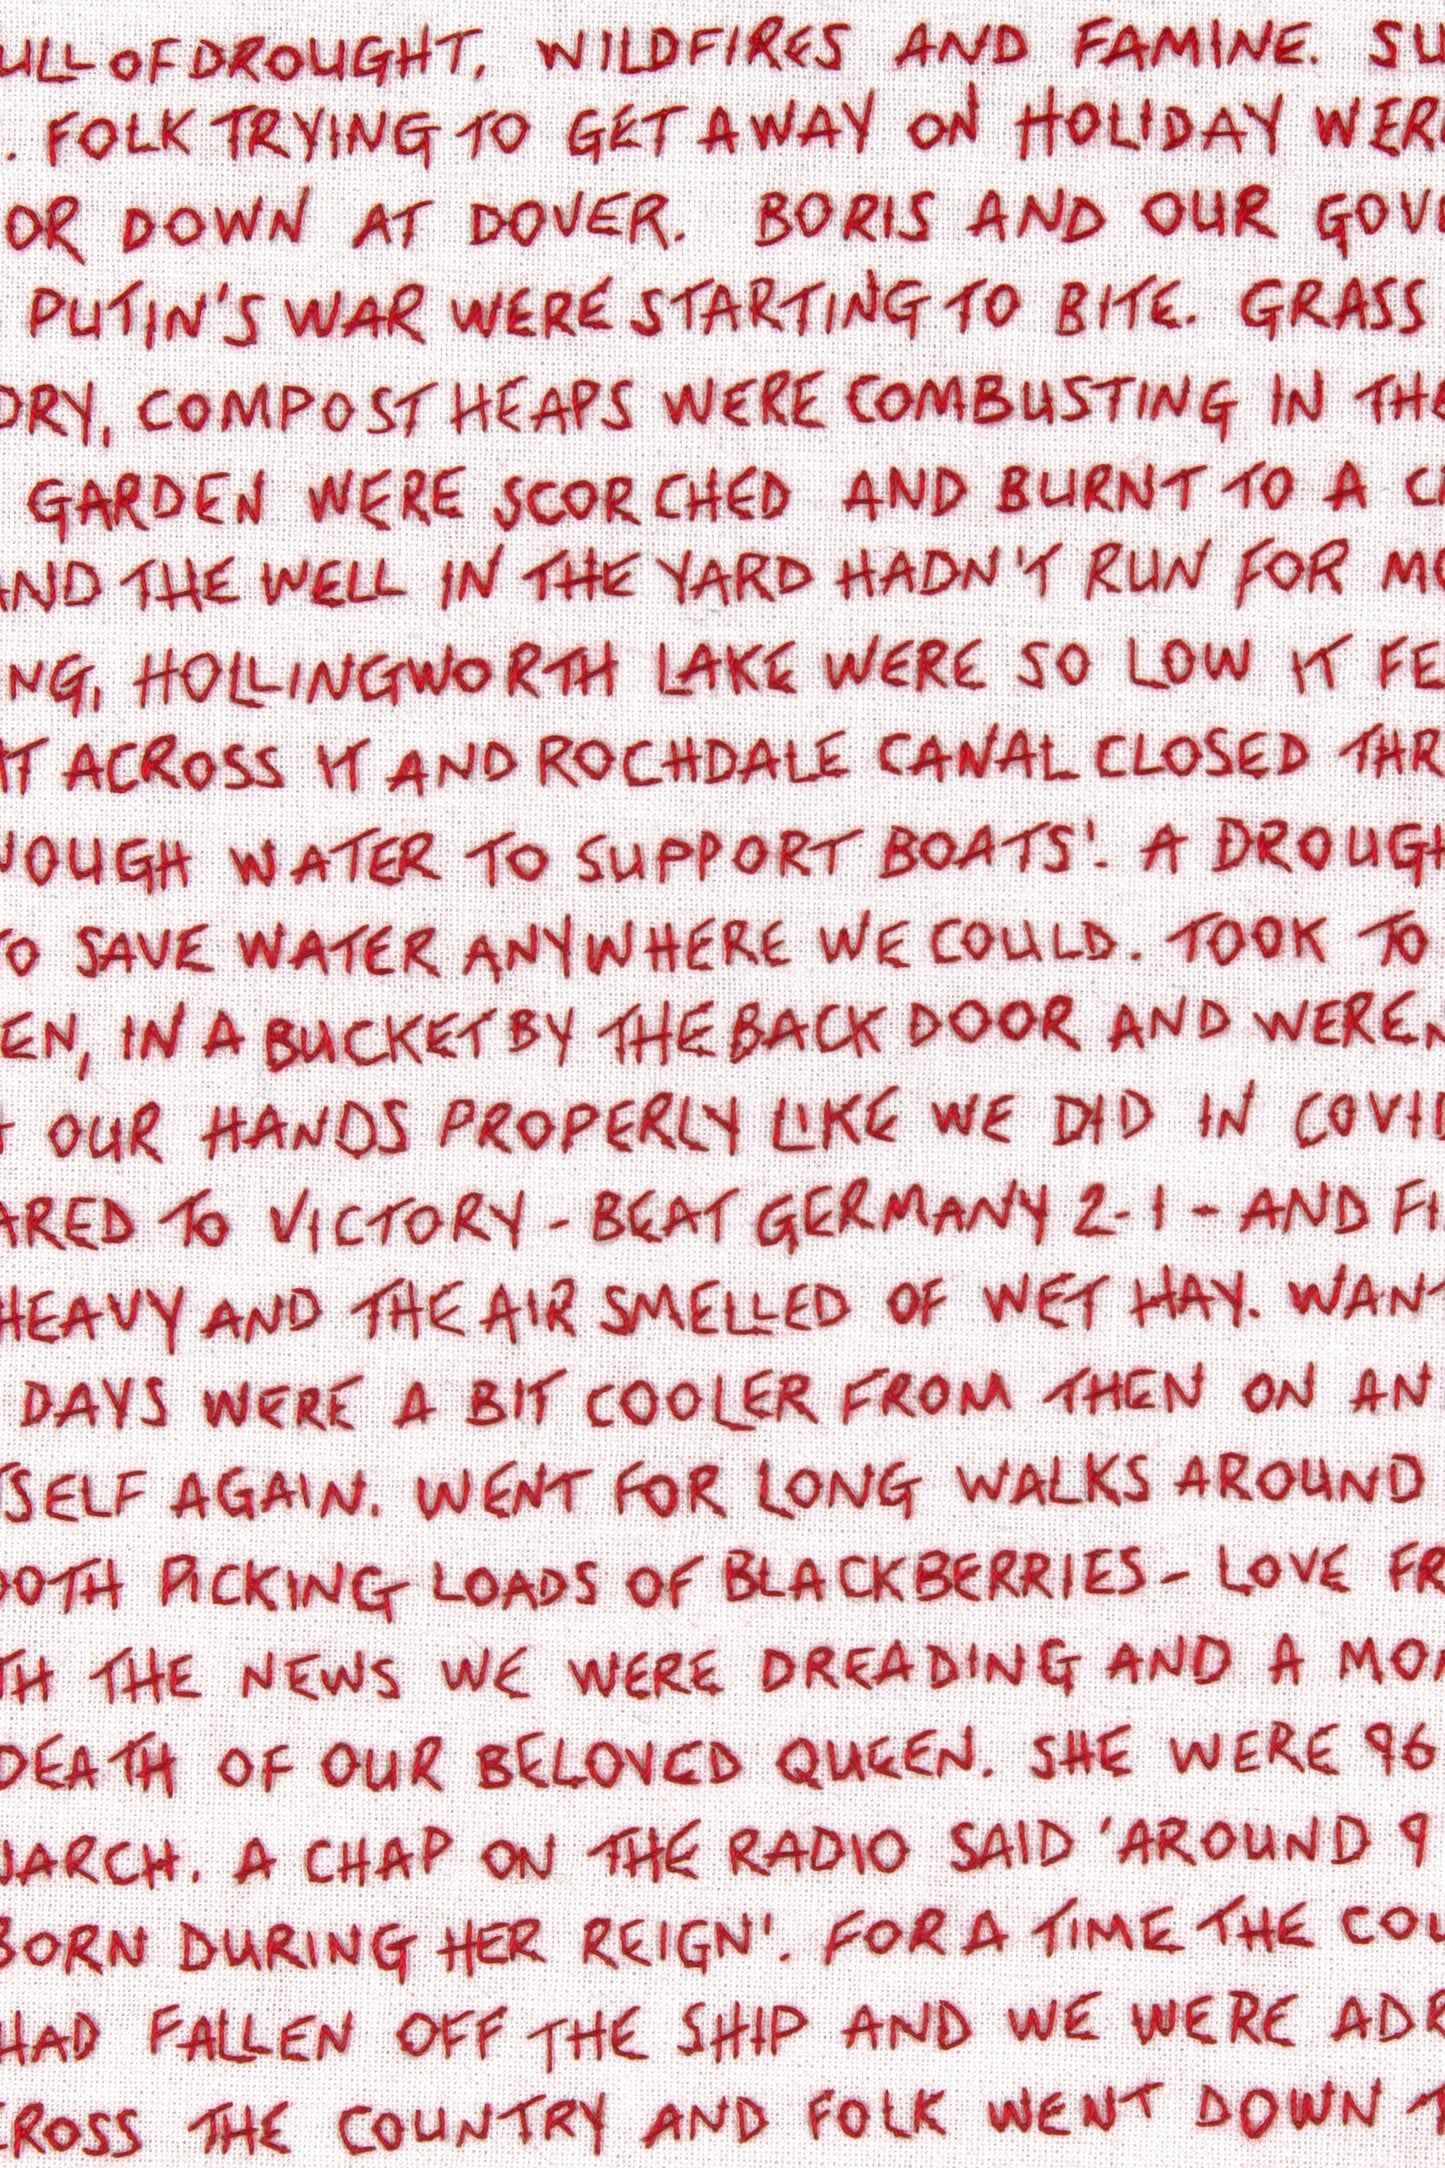 ULL OF DROUGHT, WILDFIRES AND FAMINE. SU
. FOLK TRYING TO GET AWAY ON HOLIDAY WER
OR DOWN AT DOVER. BORIS AND OUR GOV
PUTIN'S WAR WERE STARTING TO BITE. GRASS
DRY, COMPOST HEAPS WERE COMBUSTING IN THE
GARDEN WERE SCORCHED AND BURNT TO A
AND THE WELL IN THE YARD HADN'T RUN FOR MO
NG, HOLLINGWORTH LAKE WERE SO LOW IT FE
AT ACROSS IT AND ROCHDALE CANAL CLOSED THR
NOUGH WATER TO SUPPORT BOATS'. A DROUGH
TO SAVE WATER ANYWHERE WE COULD. TOOK TO
EN, IN A BUCKET BY THE BACK DOOR AND WEREN
H OUR HANDS PROPERLY LIKE WE DID IN COVID
ARED TO VICTORY - BEAT GERMANY 2-1 - AND FI
HEAVY AND THE AIR SMELLED OF WET HAY. WANT
DAYS WERE A BIT COOLER FROM THEN ON AN
TSELF AGAIN. WENT FOR LONG WALKS AROUND
OOTH PICKING LOADS OF BLACKBERRIES - LOVE FR
TH THE NEWS WE WERE DREADING AND A MON
DEATH OF OUR BELOVED QUEEN. SHE WERE 96
NARCH. A CHAP ON THE RADIO SAID 'AROUND 9
BORN DURING HER REIGN'. FOR A TIME THE COU
HAD FALLEN OFF THE SHIP AND WE WERE ADR
CROSS THE COUNTRY AND FOLK WENT DOWN T